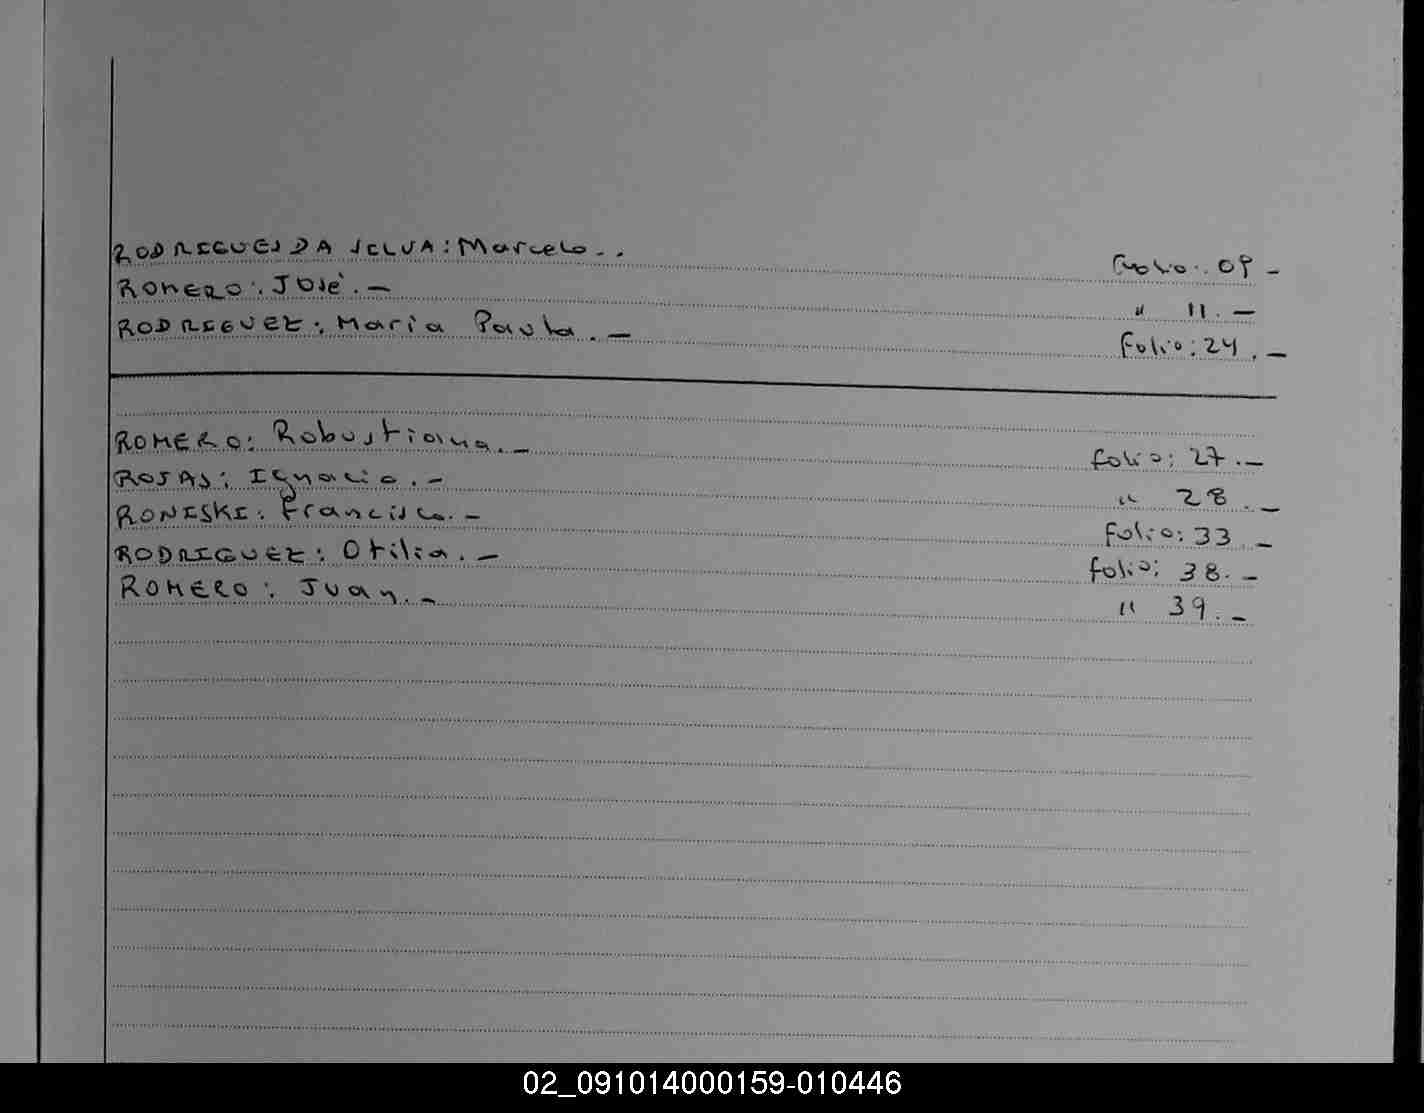 RODRIGUES DA SILVA: Marcelo.. Folio: 09 -
ROMERO: José.- " 11.-
RODRIGUEZ: Maria Paula.- Folio: 24.-
ROMERO: Robustiana.- folio: 27.-
ROJAS: Ignacio.- " 28.-
RONISKI: Francisco.- Folio: 33.-
RODRIGUEZ: Otilia.- folio: 38.-
ROMERO: Juan.- " 39.-
02_091014000159-010446